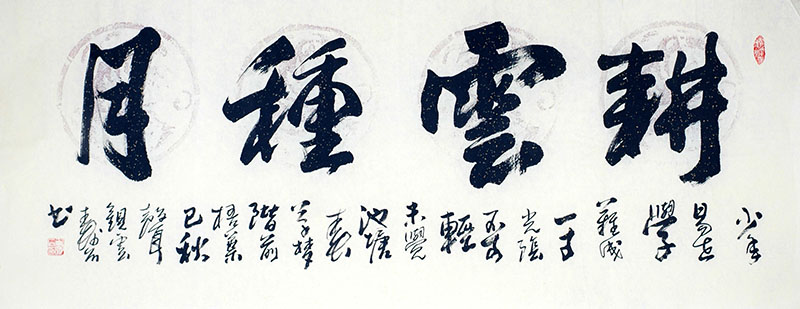 耕雲種月
少年
易老
學
難成
一寸
光陰
不可
輕
未覺
池塘
春
草夢
階前
梧葉
已秋
聲
觀雲
書